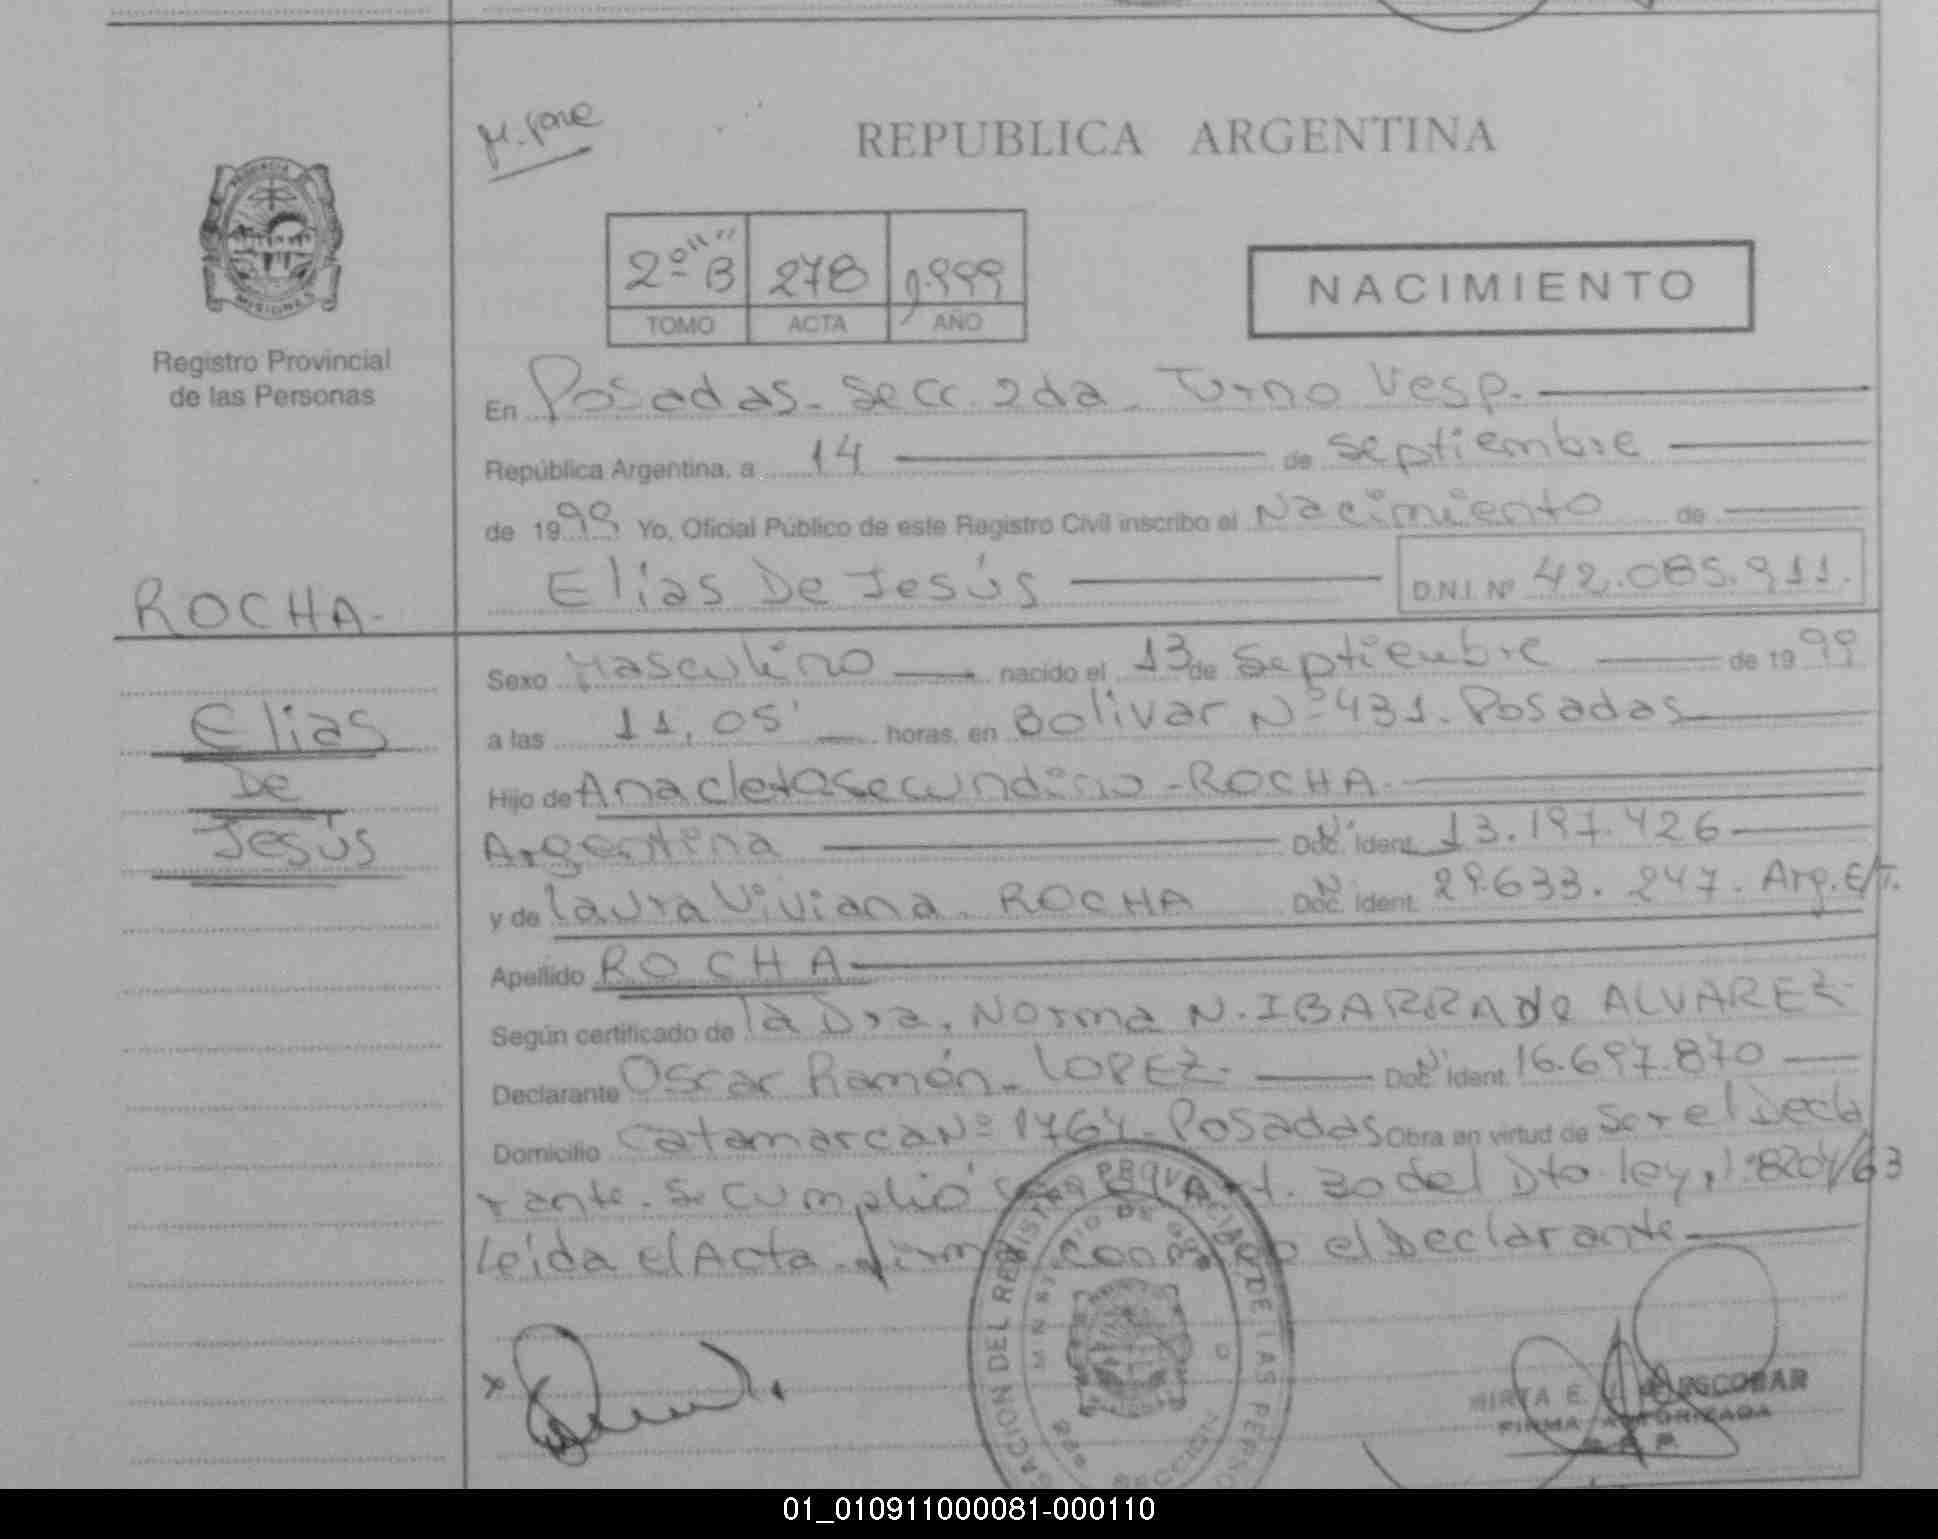 REPUBLICA ARGENTINA
MISIONES
Registro Provincial
de las Personas
2º "B" 278 1.999
TOMO ACTA AÑO
NACIMIENTO
En Posadas. Secc. 2da. Turno Vesp.
República Argentina, a 14 de septiembre
de 1999 Yo, Oficial Público de este Registro Civil inscribo el Nacimiento de
Elias De Jesús D.N.I. Nº 42.085.911.
ROCHA.
Elias
De
Jesús
Sexo Masculino nacido el 13 de Septiembre de 1999
a las 11,05' horas, en Bolivar Nº 431. Posadas
Hijo de Anacleto Secundino - ROCHA.
Argentina Doc. Ident. 13.197.426
y de Laura Viviana. ROCHA Doc. Ident. 29.633.247. Arg. E/T.
Apellido ROCHA
Según certificado de la Dra. Norma N. IBARRA de ALVAREZ
Declarante Oscar Ramón. LOPEZ. Doc. Ident. 16.697.870
Domicilio Catamarca Nº 1764. Posadas Obra en virtud de Ser el Decla
rante. Se cumplió Art. 30 del Dto. Ley, 8204/63
Leída el Acta. firma conmigo el Declarante
MINISTERIO DE
SECCION
MIRTA E. ESCOBAR
FIRMA AUTORIZADA
01_010911000081-000110